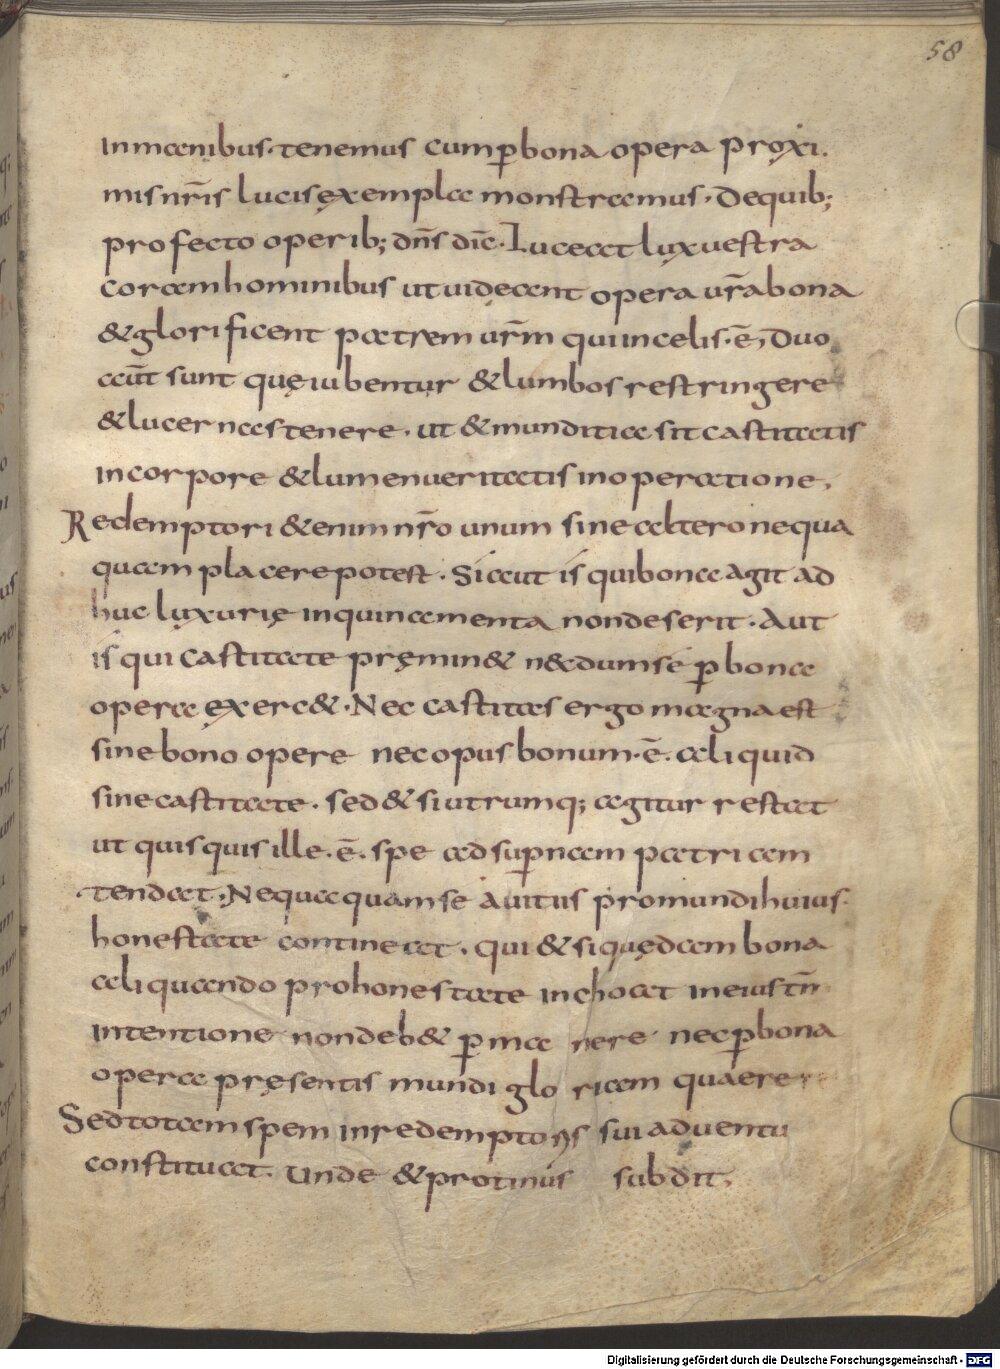 58
inmanibus·tenemus cump̄bona opera proxi.
misnr̄is lucisexempla monstramus· Dequib;
profecto operib; dn̄s dic̄· Luceat lux uestra
coramhominibus utuideant opera ur̄abona
&glorificent patrem ur̄m quiincelis·ē, Duo
aūt sunt quęiubentur &lumbos restringere
&lucernastenere· ut &munditia sit castitatis
incorpore &lumenueritatis inoperatione,
Redemptori &enim nr̄o unum sine altero nequa
quam placere potest· Siaut is qui bona agit ad
huc luxurię inquinamenta nondeserit· Aut
is qui castitate pręmin& n&dumse p̄ bona
opera exerc&· Nec castitas ergo magna est
sine bono opere nec opus bonum·ē· aliquid
sine castitate· sed & si utrumq; agitur restat
ut quisquis ille·ē· spe ad sup̄nam patriam
tendat· Nequaquam se a uitiis pro mundi huius·
honestate contineat· qui & si quędam bona
aliquando pro honestate inchoat in eius tn̄
intentione non deb& p̄manere nec p̄ bona
opera pręsentis mundi gloriam quaere
Sed totam spem in redemptoris sui aduentu
constituat· Unde & protinus subdit,
Digitalisierung gefördert durch die Deutsche Forschungsgemeinschaft - DFG